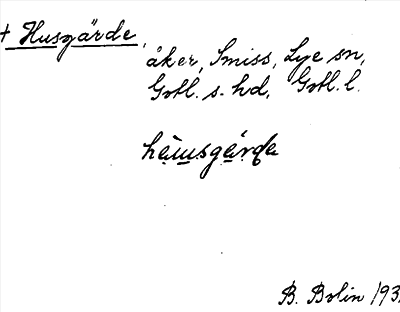 + Husgärde,
åker, Smiss, Lye sn,
Gotl. s. hd, Gotl. l.
hàusgárde
B. Bolin 193